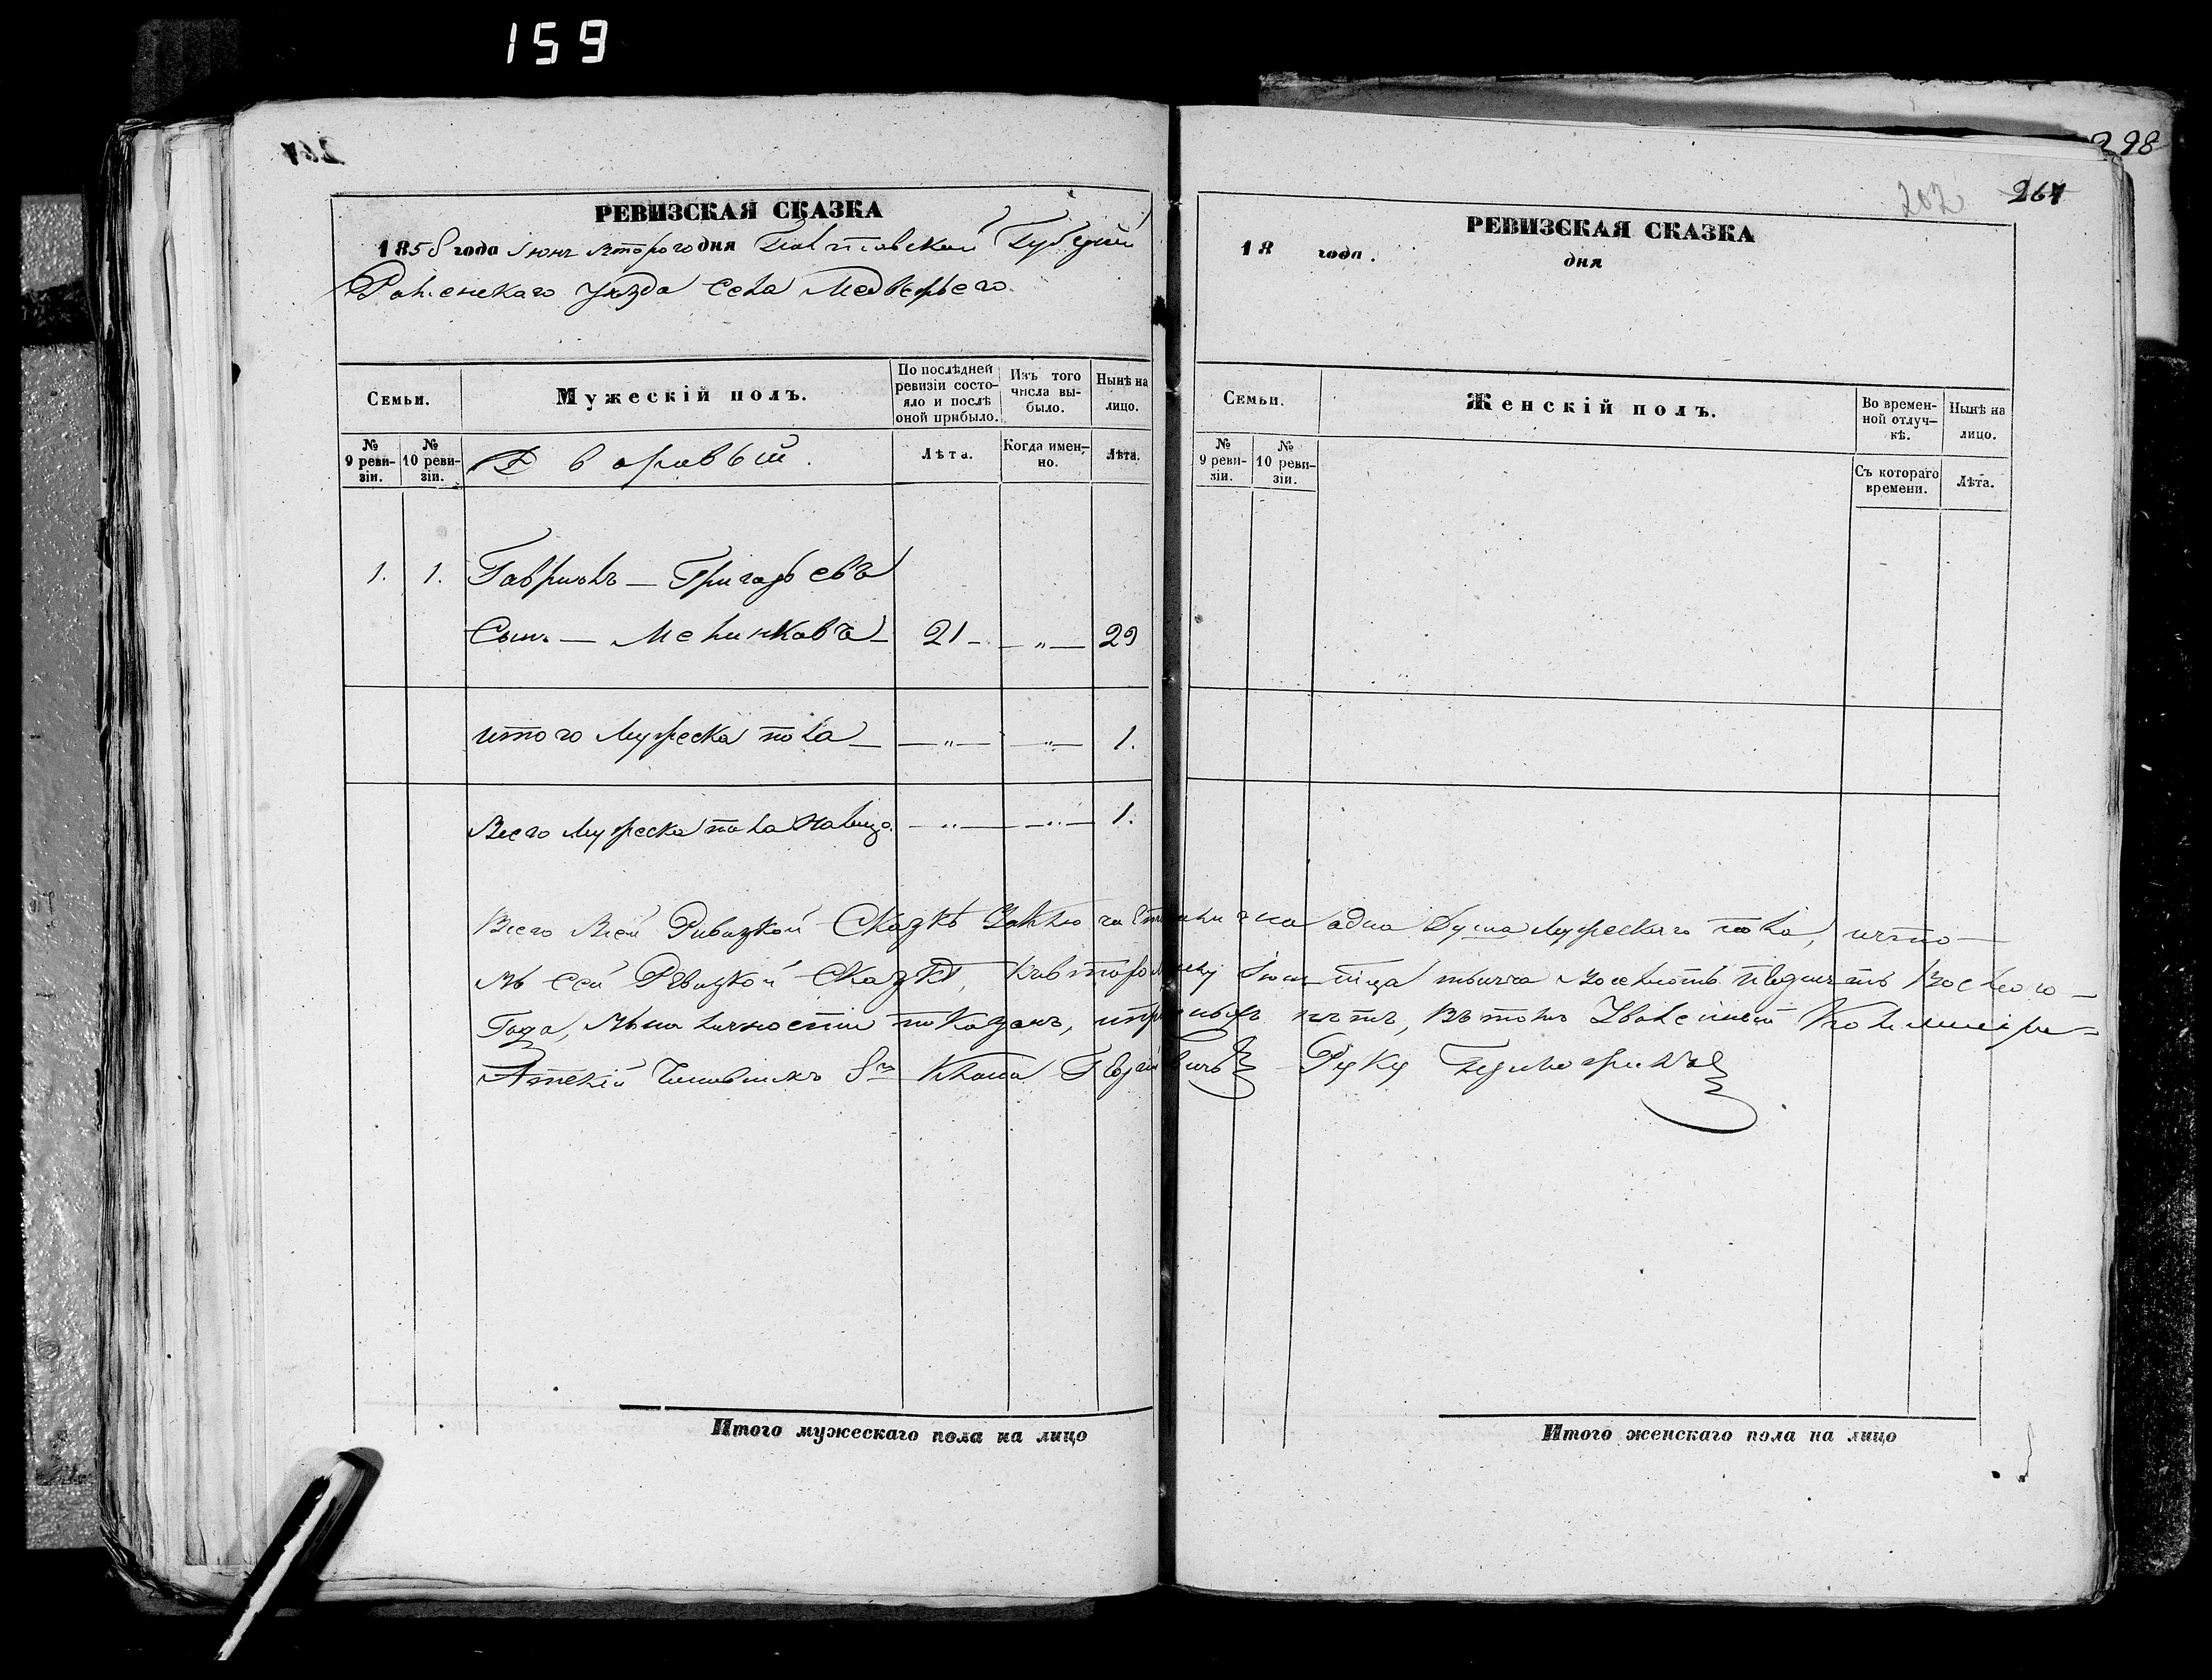 159
298
267
202 267
РЕВИЗСКАЯ СКАЗКА
1858 года Іюня второго дня Полтавской Губерніи
Роменскаго уѣзда Села Медвежьего
Семьи.
Мужескій полъ.
По послѣдней ревизіи состояло и послѣ оной прибыло.
Изъ того числа выбыло.
Нынѣ на лицо.
№ 9 ревизіи.
№ 10 ревизіи.
Дворовый.
Лѣта.
Когда именно.
Лѣта.
1. 1. Гаврилъ — Григорьевъ
Сынъ — Мельниковъ — 21 — „ — 29
итого мужеска пола — — „ — — „ — 1.
Всего мужеска пола налицо. — „ — — „ — 1.
РЕВИЗСКАЯ СКАЗКА
18 года. дня
Семьи.
Женскій полъ.
Во временной отлучкѣ.
Нынѣ на лицо.
№ 9 ревизіи.
№ 10 ревизіи.
Съ котораго времени.
Лѣта.
Всего Всей Ривизкой Сказкѣ одна Душа Мужескаго пола, ичто —
въ сей Ревизкой Сказкѣ, Ковторому Іюня тысяча Восемсотъ Восмого —
Года, показанъ, нѣтъ, въ томъ
Чиновникъ 8го Класа Руку
Итого мужескаго пола на лицо
Итого женскаго пола на лицо